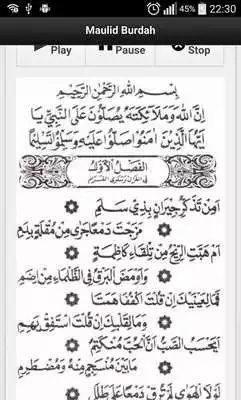 22:30
Maulid Burdah
Play Pause Stop
بِسْمِ اللهِ الرَّحْمٰنِ الرَّحِيْمِ
اِنَّ اللهَ وَمَلَآئِكَتَهُ يُصَلُّوْنَ عَلَى النَّبِيِّ يَا
اَيُّهَا الَّذِيْنَ اٰمَنُوْا صَلُّوْا عَلَيْهِ وَسَلِّمُوْا تَسْلِيْمًا
الفَصْلُ الْاَوَّلُ
فِى الغَزْلِ وَشَكْوَى الغَرَامِ
اَمِنْ تَذَكُّرِ جِيْرَانٍ بِذِيْ سَلَمٍ
مَزَجْتَ دَمْعًا جَرٰى مِنْ مُقْلَةٍ بِدَمٍ
اَمْ هَبَّتِ الرِّيْحُ مِنْ تِلْقَاءِ كَاظِمَةٍ
وَاَوْمَضَ الْبَرْقُ فِى الظَّلْمَاءِ مِنْ اِضَمٍ
فَمَا لِعَيْنَيْكَ اِنْ قُلْتَ اكْفُفَا هَمَتَا
وَمَا لِقَلْبِكَ اِنْ قُلْتَ اسْتَفِقْ يَهِمِ
اَيَحْسَبُ الصَّبُّ اَنَّ الْحُبَّ مُنْكَتِمٌ
مَا بَيْنَ مُنْسَجِمٍ مِنْهُ وَمُضْطَرِمِ
لَوْلَا الْهَوٰى لَمْ تُرِقْ دَمْعًا عَلٰى طَلَلٍ